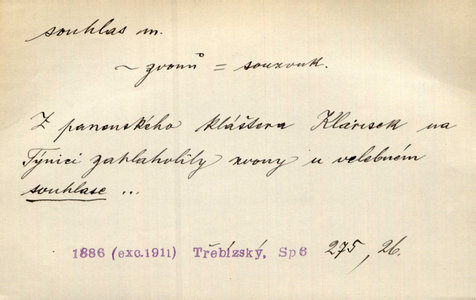 souhlas m.
~ zvonů = souzvuk.
Z panenského kláštera Klárisek na
Týnici zahlaholily zvony u velebném
souhlase ...
1886 (exc.1911) Třebízský, Sp6 275, 26.